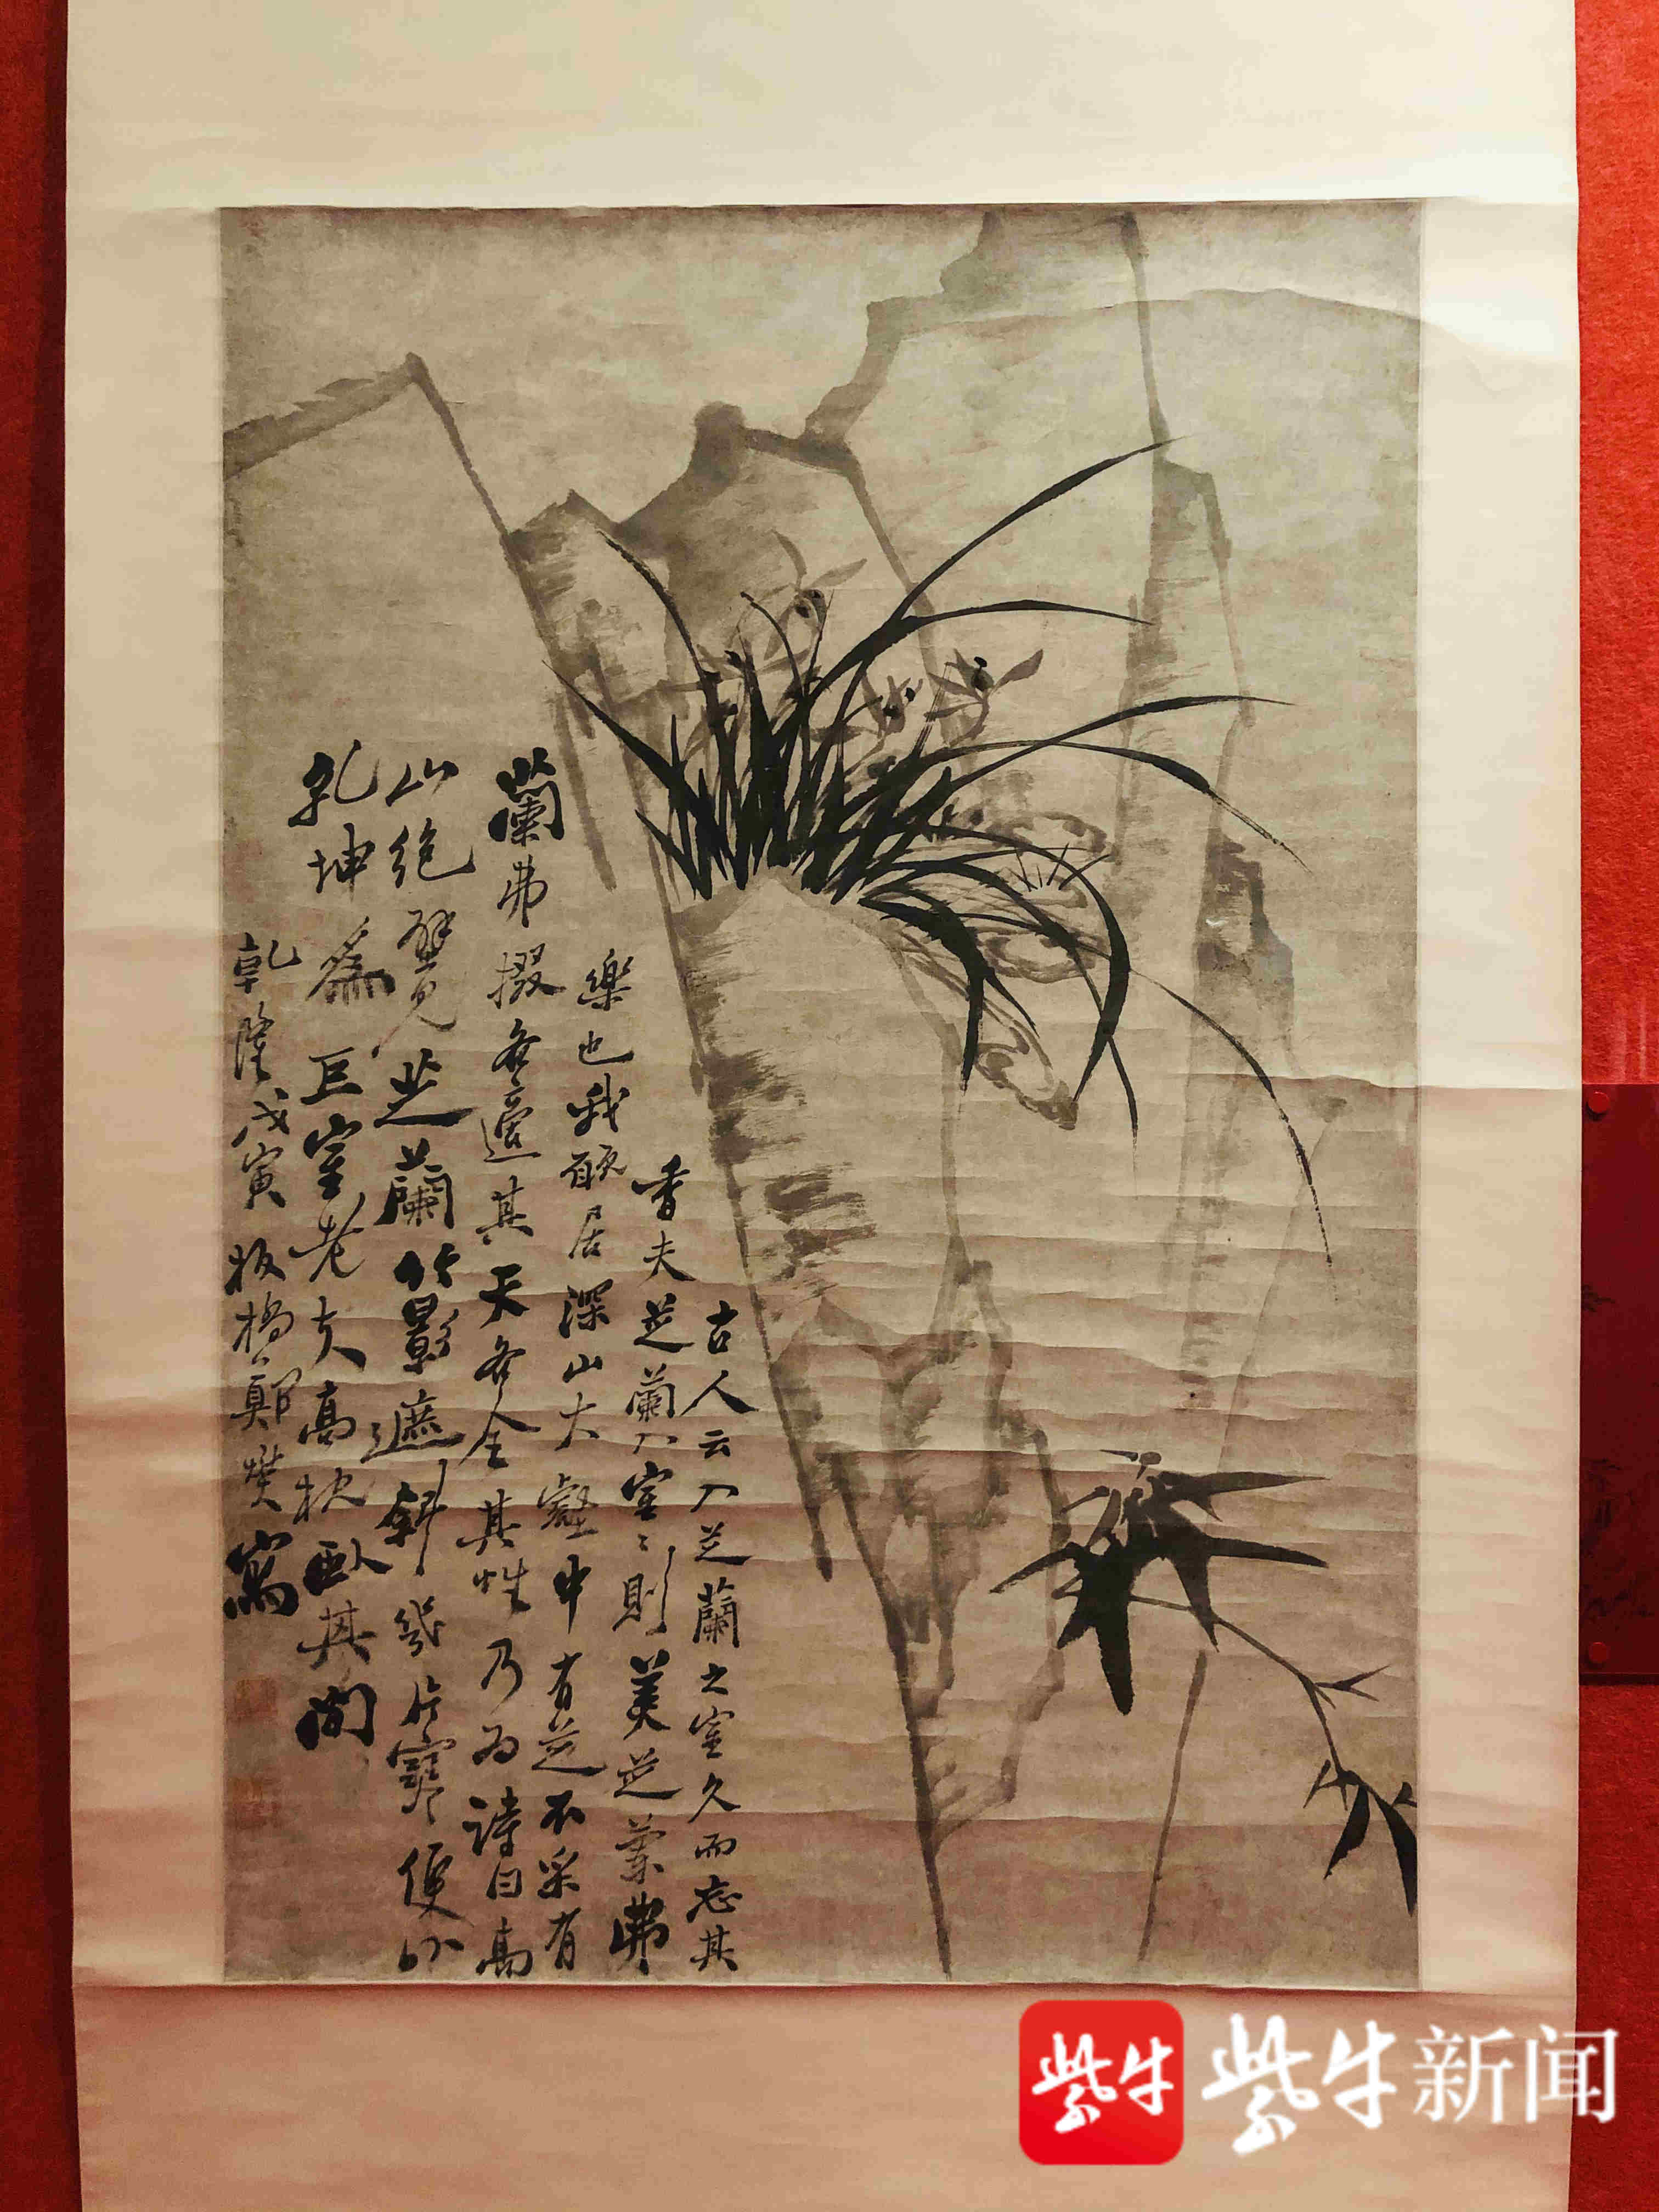 古人云入芝蘭之室久而忘其
香夫芝蘭入室〻則美芝蘭弗
樂也我願居深山大壑中有芝不采有
蘭弗掇各適其天各全其性乃为詩曰高
山絶壁見芝蘭竹影遮斜幾片寒便以
乾坤爲巨室老夫高枕臥其間
乾隆戊寅板橋鄭燮寫
紫牛
紫牛新闻